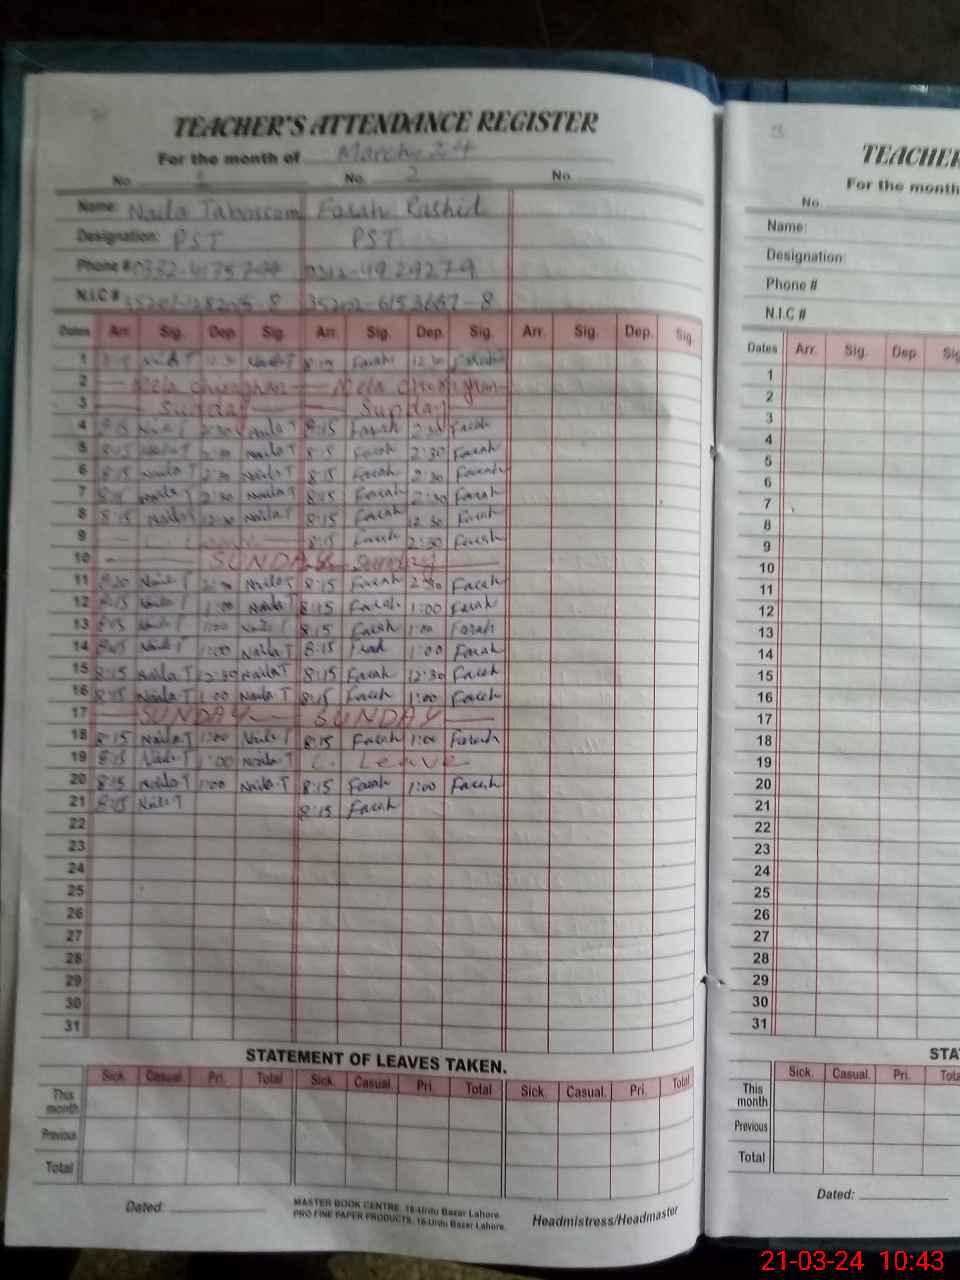 TEACHER'S ATTENDANCE REGISTER
For the month of March-24
No. 1 No. 2 No.
Name: Naila Tabassum Farah Rashid
Designation: PST PST
Phone #
N.I.C #
Dates Arr. Sig. Dep. Sig. Arr. Sig. Dep. Sig. Arr. Sig. Dep. Sig.
1 Naila T Naila T 8:15 Farah 12:30 Farah
2 Mela Chiraghan Mela Chiraghan
3 Sunday Sunday
4 8:15 Naila T 2:30 Naila T 8:15 Farah 2:30 Farah
5 8:15 Naila T 2:30 Naila T 8:15 Farah 2:30 Farah
6 8:15 Naila T 2:30 Naila T 8:15 Farah 2:30 Farah
7 8:15 Naila T 2:30 Naila T 8:15 Farah 2:30 Farah
8 8:15 Naila T 12:30 Naila T 8:15 Farah 12:30 Farah
9 Leave 8:15 Farah 2:30 Farah
10 SUNDAY Sunday
11 8:20 Naila T 2:30 Naila T 8:15 Farah 2:30 Farah
12 8:15 Naila T 1:00 Naila T 8:15 Farah 1:00 Farah
13 8:15 Naila T 1:00 Naila T 8:15 Farah 1:00 Farah
14 8:15 Naila T 1:00 Naila T 8:15 1:00 Farah
15 8:15 Naila T 12:30 Naila T 8:15 Farah 12:30 Farah
16 8:15 Naila T 1:00 Naila T 8:15 Farah 1:00 Farah
17 SUNDAY SUNDAY
18 8:15 Naila T 1:00 Naila T 8:15 Farah 1:00 Farah
19 8:15 Naila T 1:00 Naila T C. Leave
20 8:15 Naila T 1:00 Naila T 8:15 Farah 1:00 Farah
21 8:15 Naila T 8:15 Farah
22
23
24
25
26
27
28
29
30
31
STATEMENT OF LEAVES TAKEN.
Sick. Casual. Pri. Total Sick. Casual. Pri. Total Sick. Casual. Pri. Total
This month
Previous
Total
Dated:
MASTER BOOK CENTRE. 16-Urdu Bazar Lahore.
PRO FINE PAPER PRODUCTS. 16-Urdu Bazar Lahore.
Headmistress/Headmaster
TEACHER
For the month
No.
Name:
Designation:
Phone #
N.I.C #
Dates Arr. Sig. Dep. Sig
1
2
3
4
5
6
7
8
9
10
11
12
13
14
15
16
17
18
19
20
21
22
23
24
25
26
27
28
29
30
31
STA
Sick. Casual. Pri. Tota
This month
Previous
Total
Dated:
21-03-24 10:43